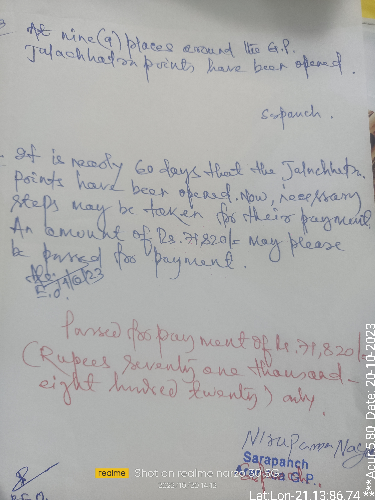 At nine (9) places around the G.P.
Jalachhatra points have been opened.
Sarpanch.
It is nearly 60 days that the Jalachhatra
points have been opened. Now, necessary
steps may be taken for their payment.
An amount of Rs. 71,820/- may please
be passed for payment.
E.O.
Passed for payment of Rs. 71,820/-
(Rupees seventy one thousand
eight hundred twenty) only.
Sarapanch
G.P.
realme Shot on realme narzo 30 5G
2023.10.20 14:13
Lat:Lon-21.13:86.74
***Acur:5.80 Date: 20-10-2023